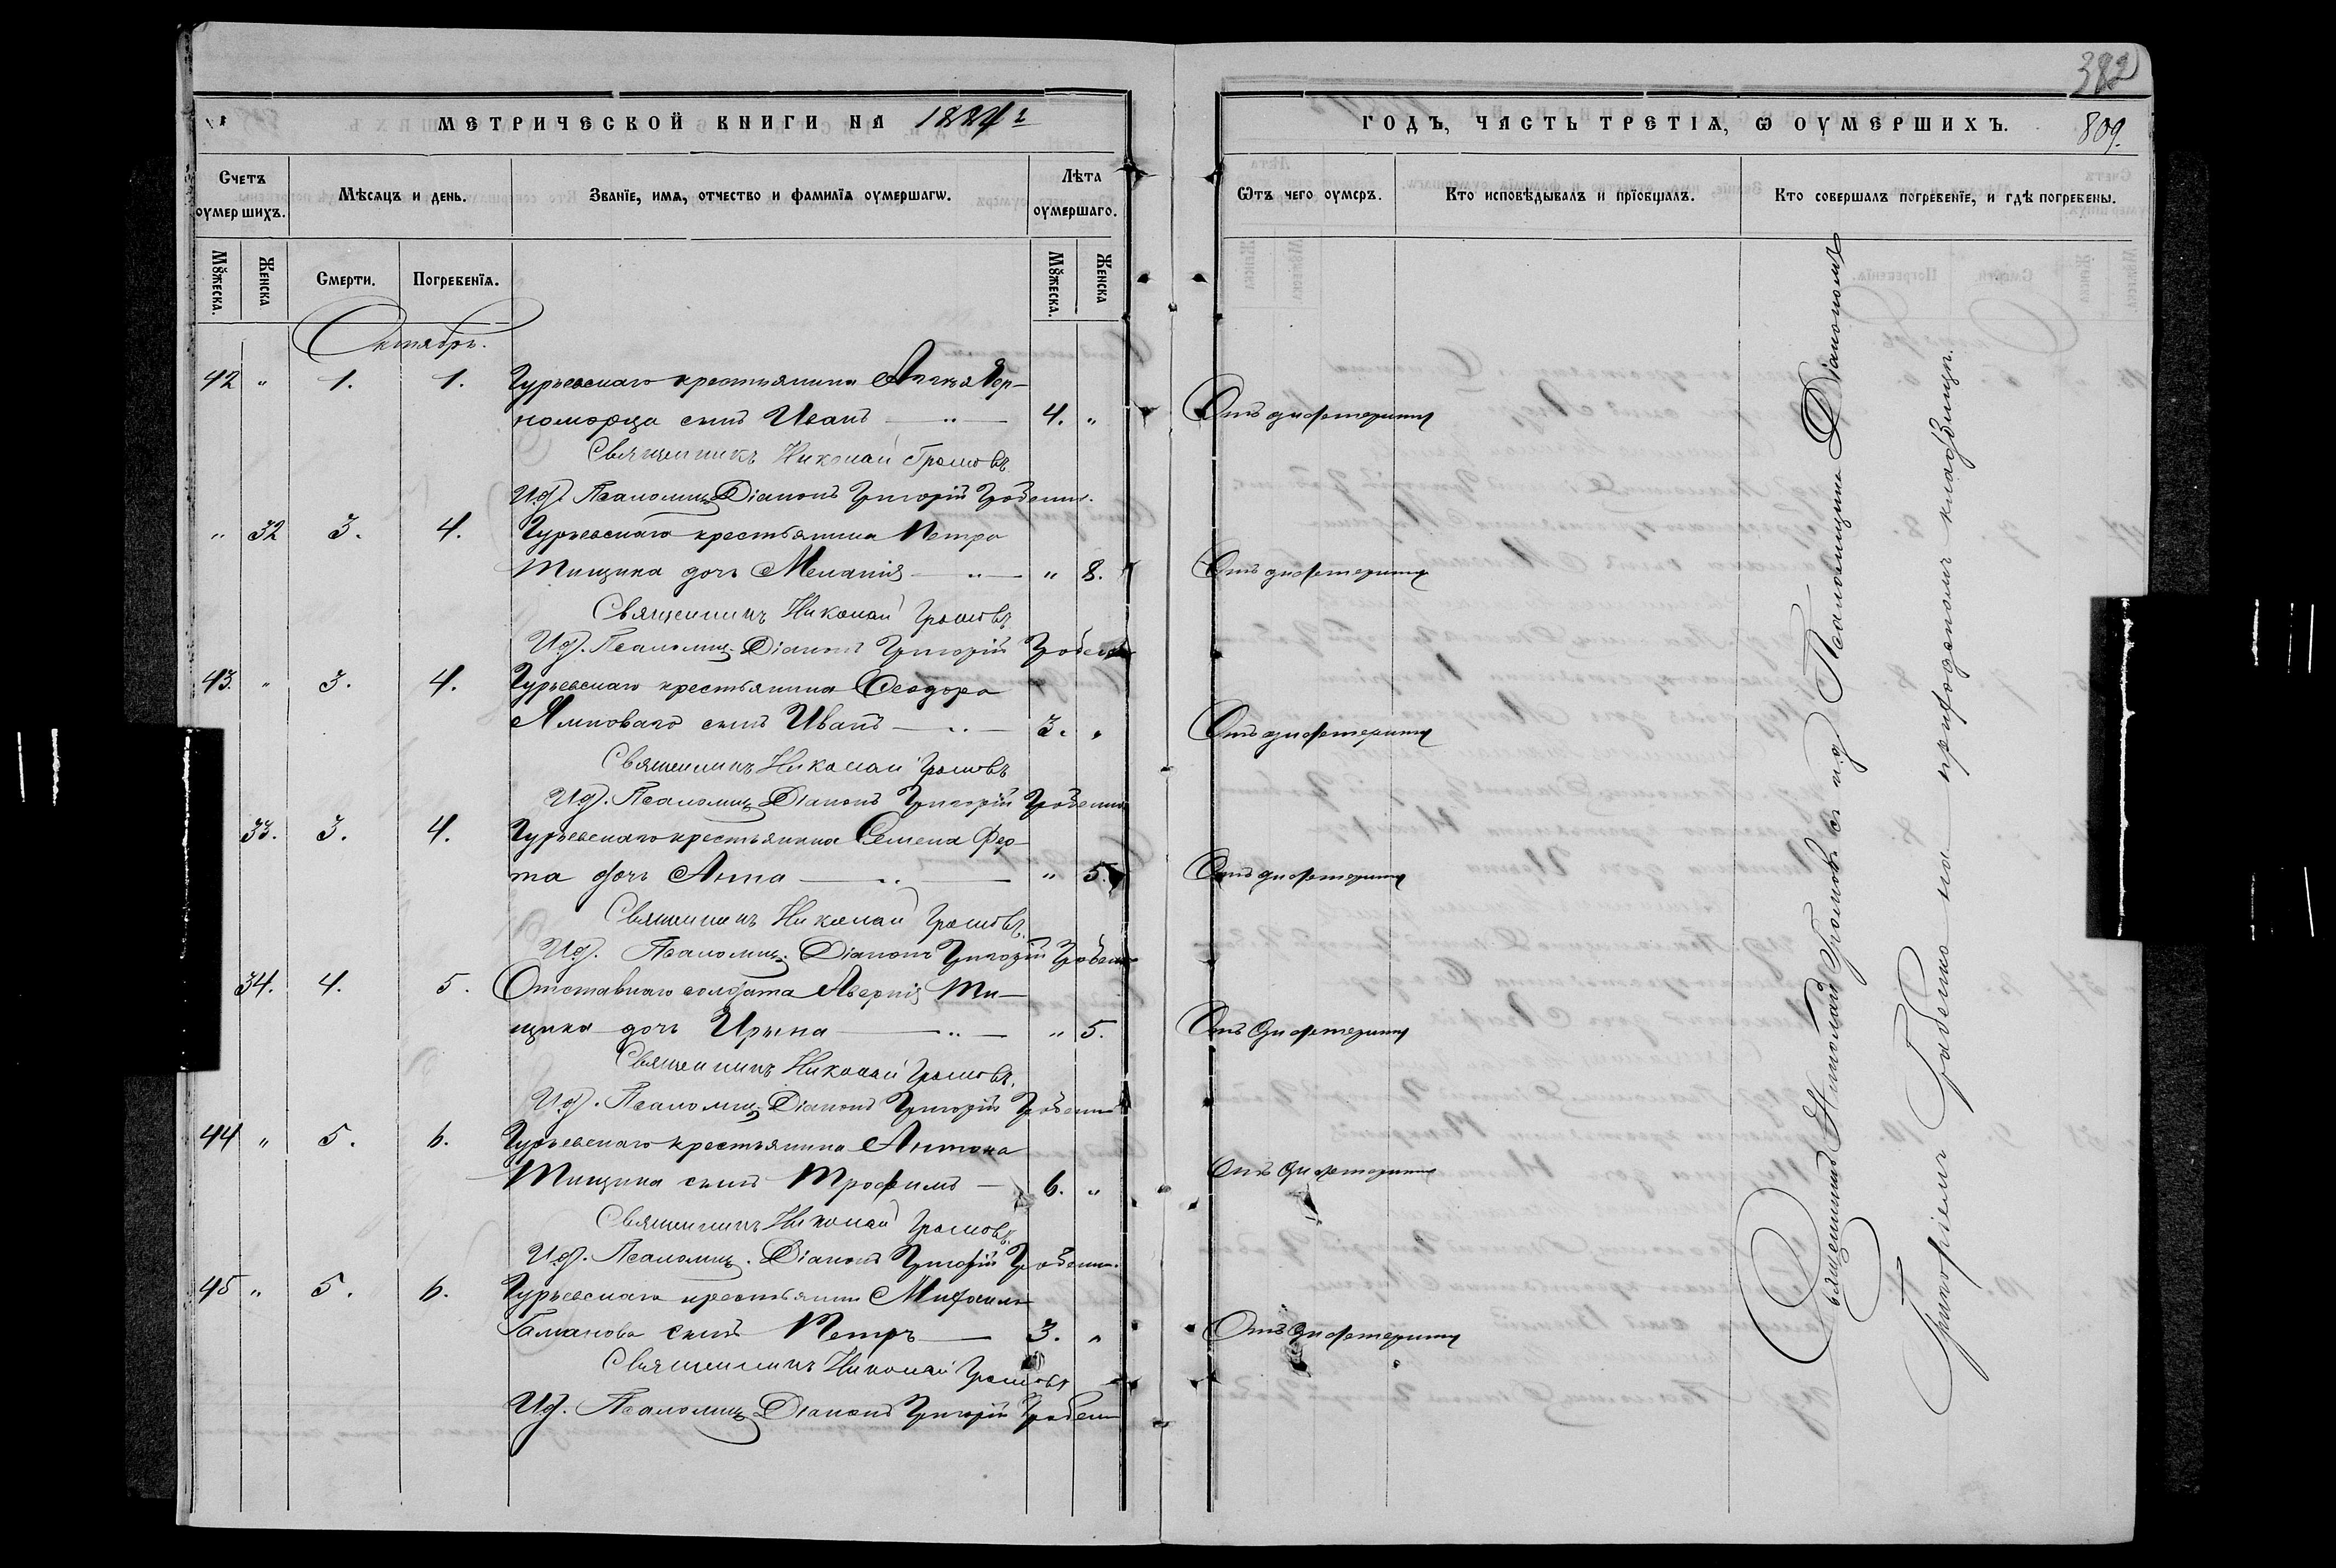 382
МЕТРИЧЕСКОЙ КНИГИ НА 1884 г
ГОДЪ, ЧАСТЬ ТРЕТІѦ, Ѡ ОУМЕРШИХЪ.
809.
Счетъ оумершихъ.
Мѣсяцъ и день.
Званіе, имѧ, отчество и фамиліѧ оумершагѡ.
Лѣта оумершаго.
Ѿтъ чего оумеръ.
Кто исповѣдывалъ и прїобщалъ.
Кто совершалъ погребенїе, и гдѣ погребены.
Мꙋжеска.
Женска
Смерти.
Погребенїѧ.
Мꙋжеска.
Женска
Октябрь.
42 " 1. 1. Гурьевскаго крестьянина Чер-
номорца сынъ Иванъ — " — 4. " Отъ дифтерита
Священникъ Николай Громовъ
И.д. Псаломщ. Діаконъ Григорій Гробенко.
" 32 3. 4. Гурьевскаго крестьянина Петра
Тищика дочь Меланія — " — " 8. Отъ дифтерита
Священникъ Николай Громовъ
И.д. Псаломщ. Діаконъ Григорій Гробенко
43. " 3. 4. Гурьевскаго крестьянина Ѳеодора
сынъ Иванъ — " — 3. " Отъ дифтерита
Священникъ Николай Громовъ
И.д. Псаломщ. Діаконъ Григорій Гробенко
33. 3. 4. Гурьевскаго крестьянина Семена Фер-
та дочь Анна — " — " 5. Отъ дифтерита
Священникъ Николай Громовъ.
И.д. Псаломщ. Діаконъ Григорій Гробенко
34. 4. 5. Отставнаго солдата Аверкія Ти-
щика дочь Ирина — " — " 5. Отъ дифтерита
Священникъ Николай Громовъ.
И.д. Псаломщ. Діаконъ Григорій Гробенко
44 " 5. 6. Гурьевскаго крестьянина Антона
Тищика сынъ Трофимъ — 6. " Отъ дифтерита
Священникъ Николай Громовъ.
И.д. Псаломщ. Діаконъ Григорій Гробенко.
45 " 5. 6. Гурьевскаго крестьянина Михаила
Таманова сынъ Петръ — 3. " Отъ дифтерита
Священникъ Николай Громовъ
И.д. Псаломщ. Діаконъ Григорій Гробенко
Священникъ Николай Громовъ съ и.д. Псаломщика Діакономъ
Григоріемъ Гробенко на приходскомъ кладбищѣ.